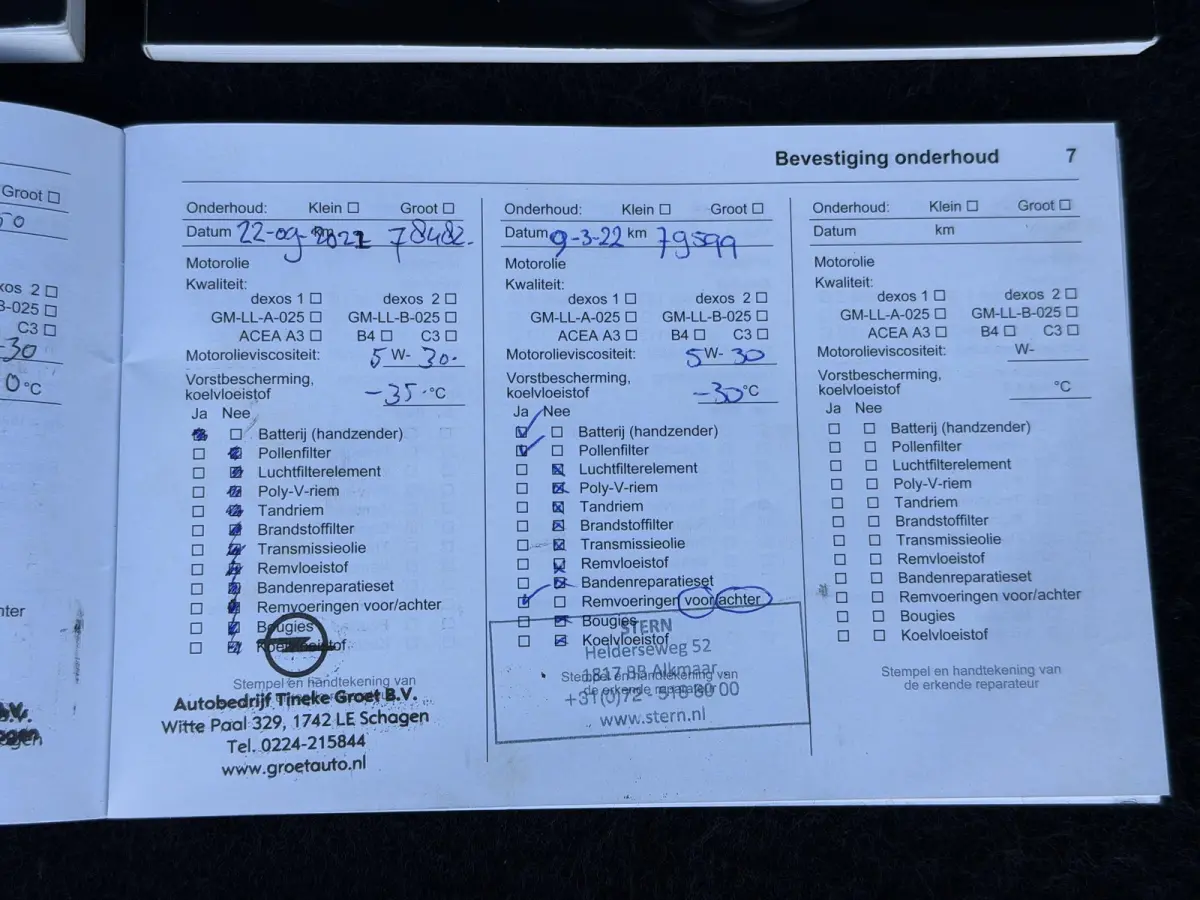 Groot
50
xos 2
B-025
C3
-30
0 °C
hter
B.V.
agen
Bevestiging onderhoud 7
Onderhoud: Klein Groot
Datum 22-09-2021 km 78482.
Motorolie
Kwaliteit:
dexos 1 dexos 2
GM-LL-A-025 GM-LL-B-025
ACEA A3 B4 C3
Motorolieviscositeit: 5 W- 30.
Vorstbescherming,
koelvloeistof -35. °C
Ja Nee
Batterij (handzender)
Pollenfilter
Luchtfilterelement
Poly-V-riem
Tandriem
Brandstoffilter
Transmissieolie
Remvloeistof
Bandenreparatieset
Remvoeringen voor/achter
Bougies
Koelvloeistof
Stempel en handtekening van
Autobedrijf Tineke Groet B.V.
Witte Paal 329, 1742 LE Schagen
Tel. 0224-215844
www.groetauto.nl
Onderhoud: Klein Groot
Datum 9-3-22 km 79599
Motorolie
Kwaliteit:
dexos 1 dexos 2
GM-LL-A-025 GM-LL-B-025
ACEA A3 B4 C3
Motorolieviscositeit: 5 W- 30
Vorstbescherming,
koelvloeistof -30 °C
Ja Nee
Batterij (handzender)
Pollenfilter
Luchtfilterelement
Poly-V-riem
Tandriem
Brandstoffilter
Transmissieolie
Remvloeistof
Bandenreparatieset
Remvoeringen voor/achter
Bougies
STERN
Koelvloeistof
Helderseweg 52
1817 BB Alkmaar
Stempel en handtekening van
de erkende reparateur
www.stern.nl
Onderhoud: Klein Groot
Datum km
Motorolie
Kwaliteit:
dexos 1 dexos 2
GM-LL-A-025 GM-LL-B-025
ACEA A3 B4 C3
Motorolieviscositeit: W-
Vorstbescherming,
koelvloeistof °C
Ja Nee
Batterij (handzender)
Pollenfilter
Luchtfilterelement
Poly-V-riem
Tandriem
Brandstoffilter
Transmissieolie
Remvloeistof
Bandenreparatieset
Remvoeringen voor/achter
Bougies
Koelvloeistof
Stempel en handtekening van
de erkende reparateur